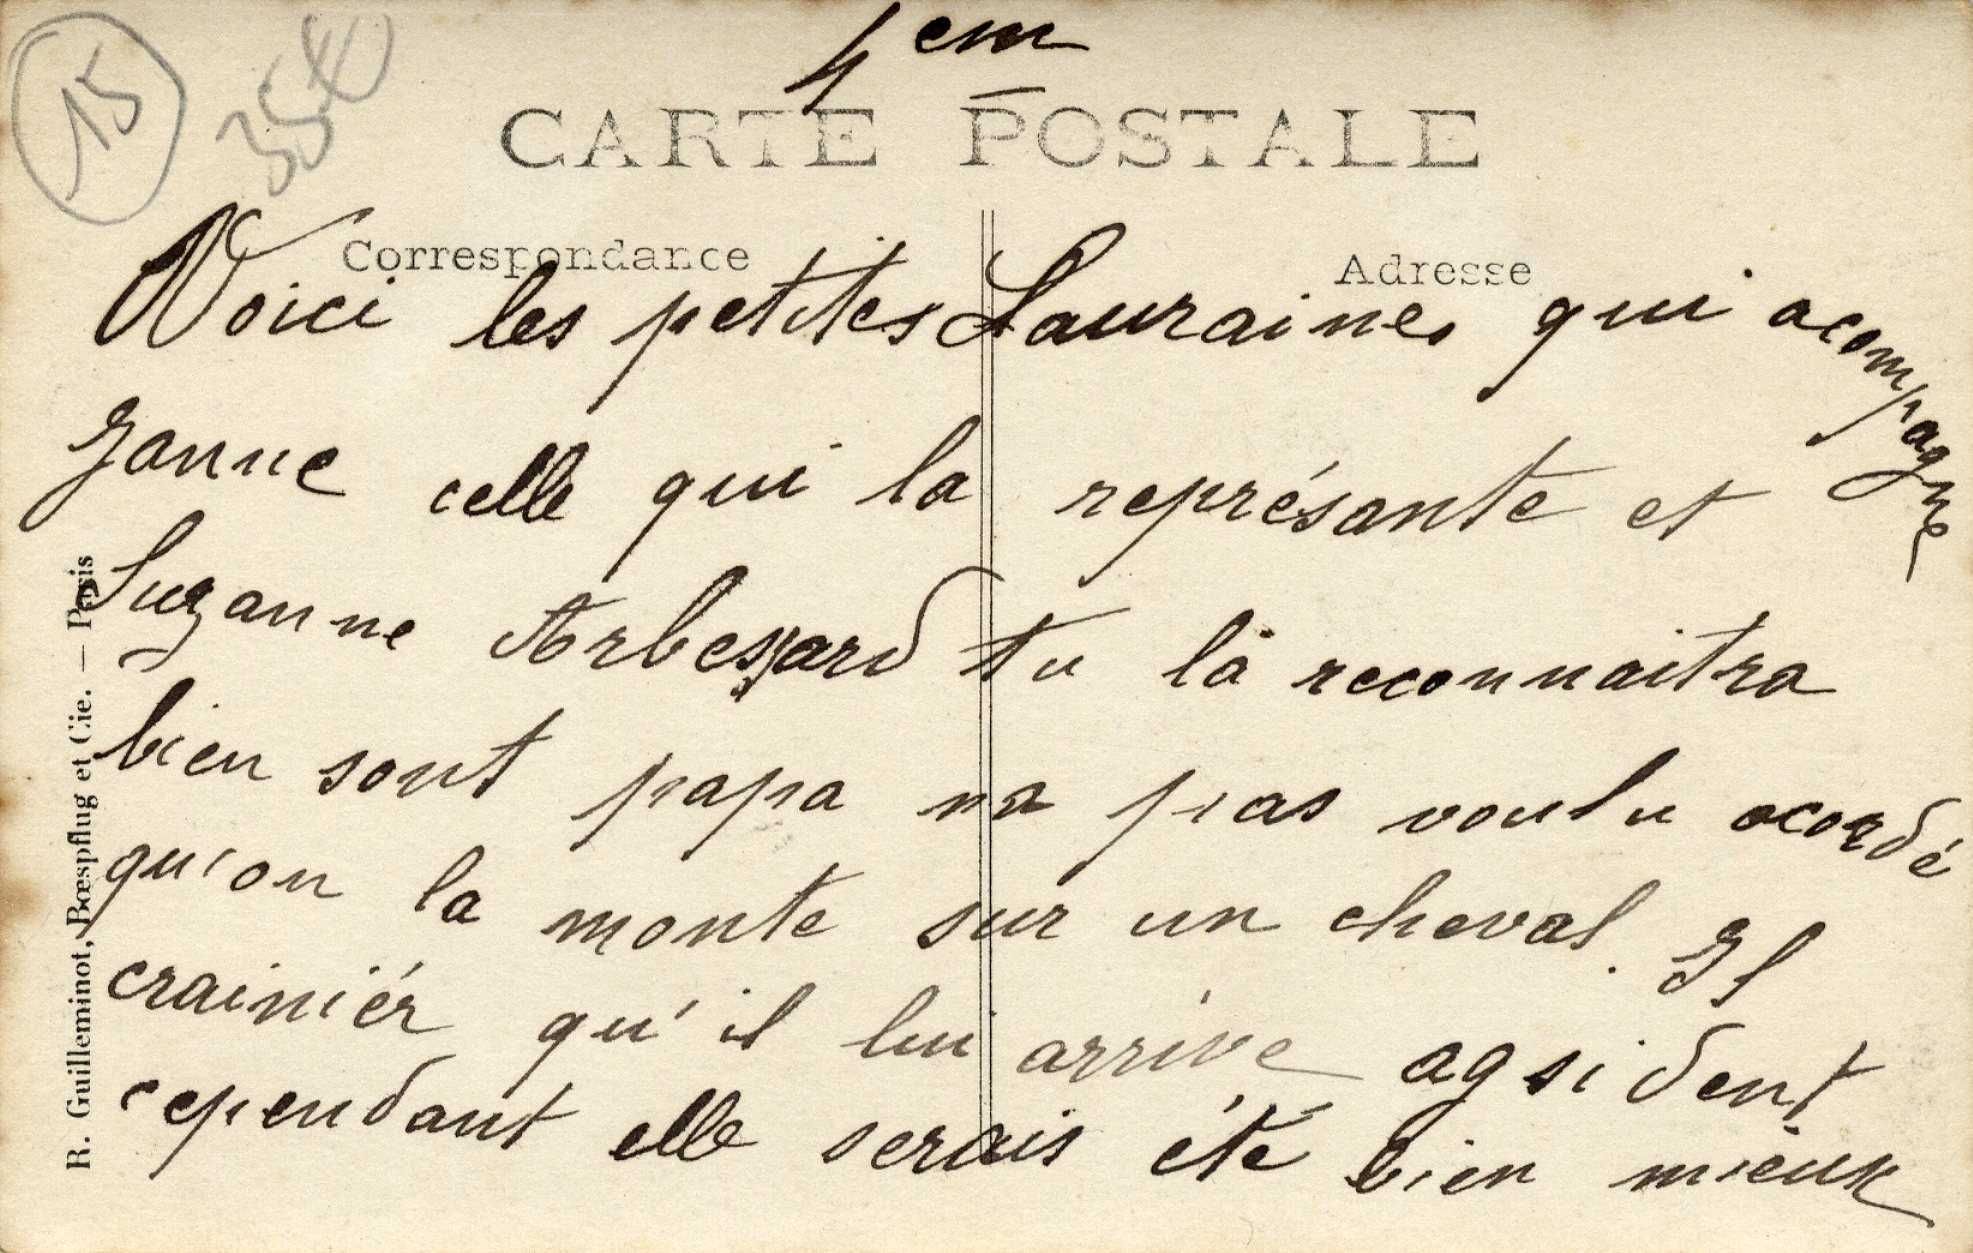 15
35€
4em
CARTE POSTALE
Correspondance
Adresse
Voici les petites Lauraines qui acompagne
Janne celle qui la représante et
Suzanne Arbessard tu la reconnaitra
bien sont papa na pas voulu acordé
qu'on la monte sur un cheval. Il
crainiér qu'il lui arrive agsident
cependant elle serais été bien mieux
R. Guilleminot, Bœspflug et Cie. — Paris